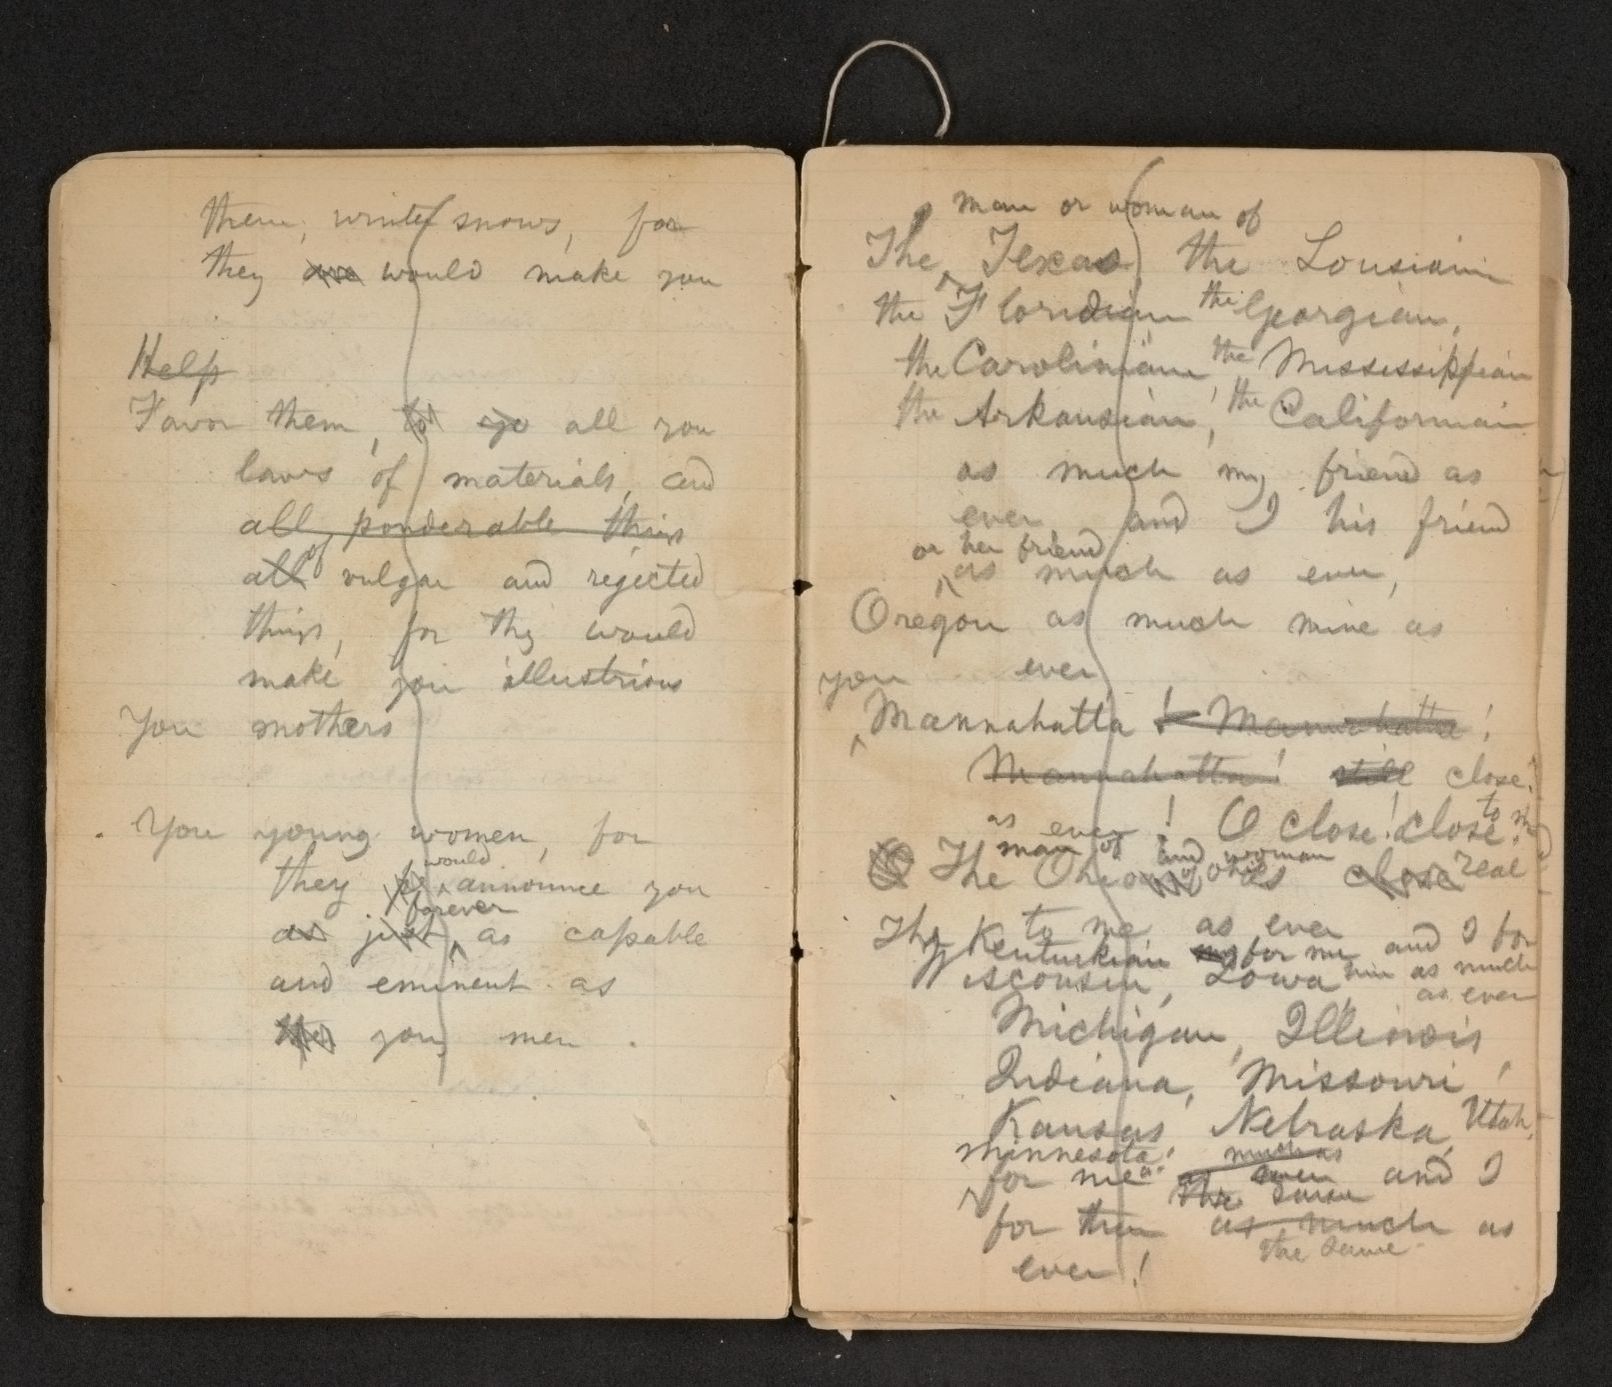 them, winter snows, for
they are would make you
Help
Favor them, to go all you
laws of materials, and
all ponderable things
all of vulgar and rejected
things, for they would
make you illustrious
You mothers
You young women, for
would
they announce you
forever
as just as capable
and eminent as
the young men.
man or woman of
The Texas the Lousiain
the Floridian the Georgian,
the Carolinian, the Mississippian
the Arkansian, the Californian
as much my friend as
ever and I his friend
or her friend
as much as ever,
Oregon as much mine as
you ever
Mannahatta! Mannahatta!
Mannahatta! still close!
as ever! O close! close! to me
man of and woman
O The Ohio of Ohio as close real
to me as ever
The Kentuckian my for me and I for
Wisconsin, Iowa, him as much
as ever
Michigan, Illinois,
Indiana, Missouri,
Kansas, Nebraska, Utah,
Minnesota, much as
for me as as ever and I
the same
for them as much as
the same
ever!